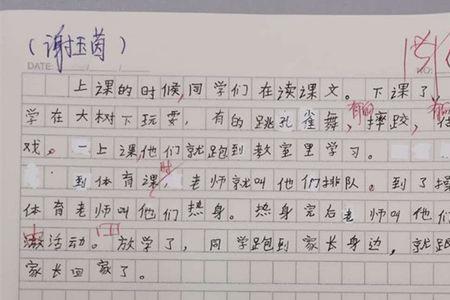 (谢玉茵)
DATE: / /
NO:
上课的时候,同学们在读课文。下课了
学在大树下玩耍,有的跳孔雀舞,有的摔跤,有的
戏。一上课他们就跑到教室里学习。
到体育课时,老师就叫他们排队。到了操
体育老师叫他们热身。热身完后老师叫他们
活动。放学了,同学跑到家长身边,就跟
家长回家了。